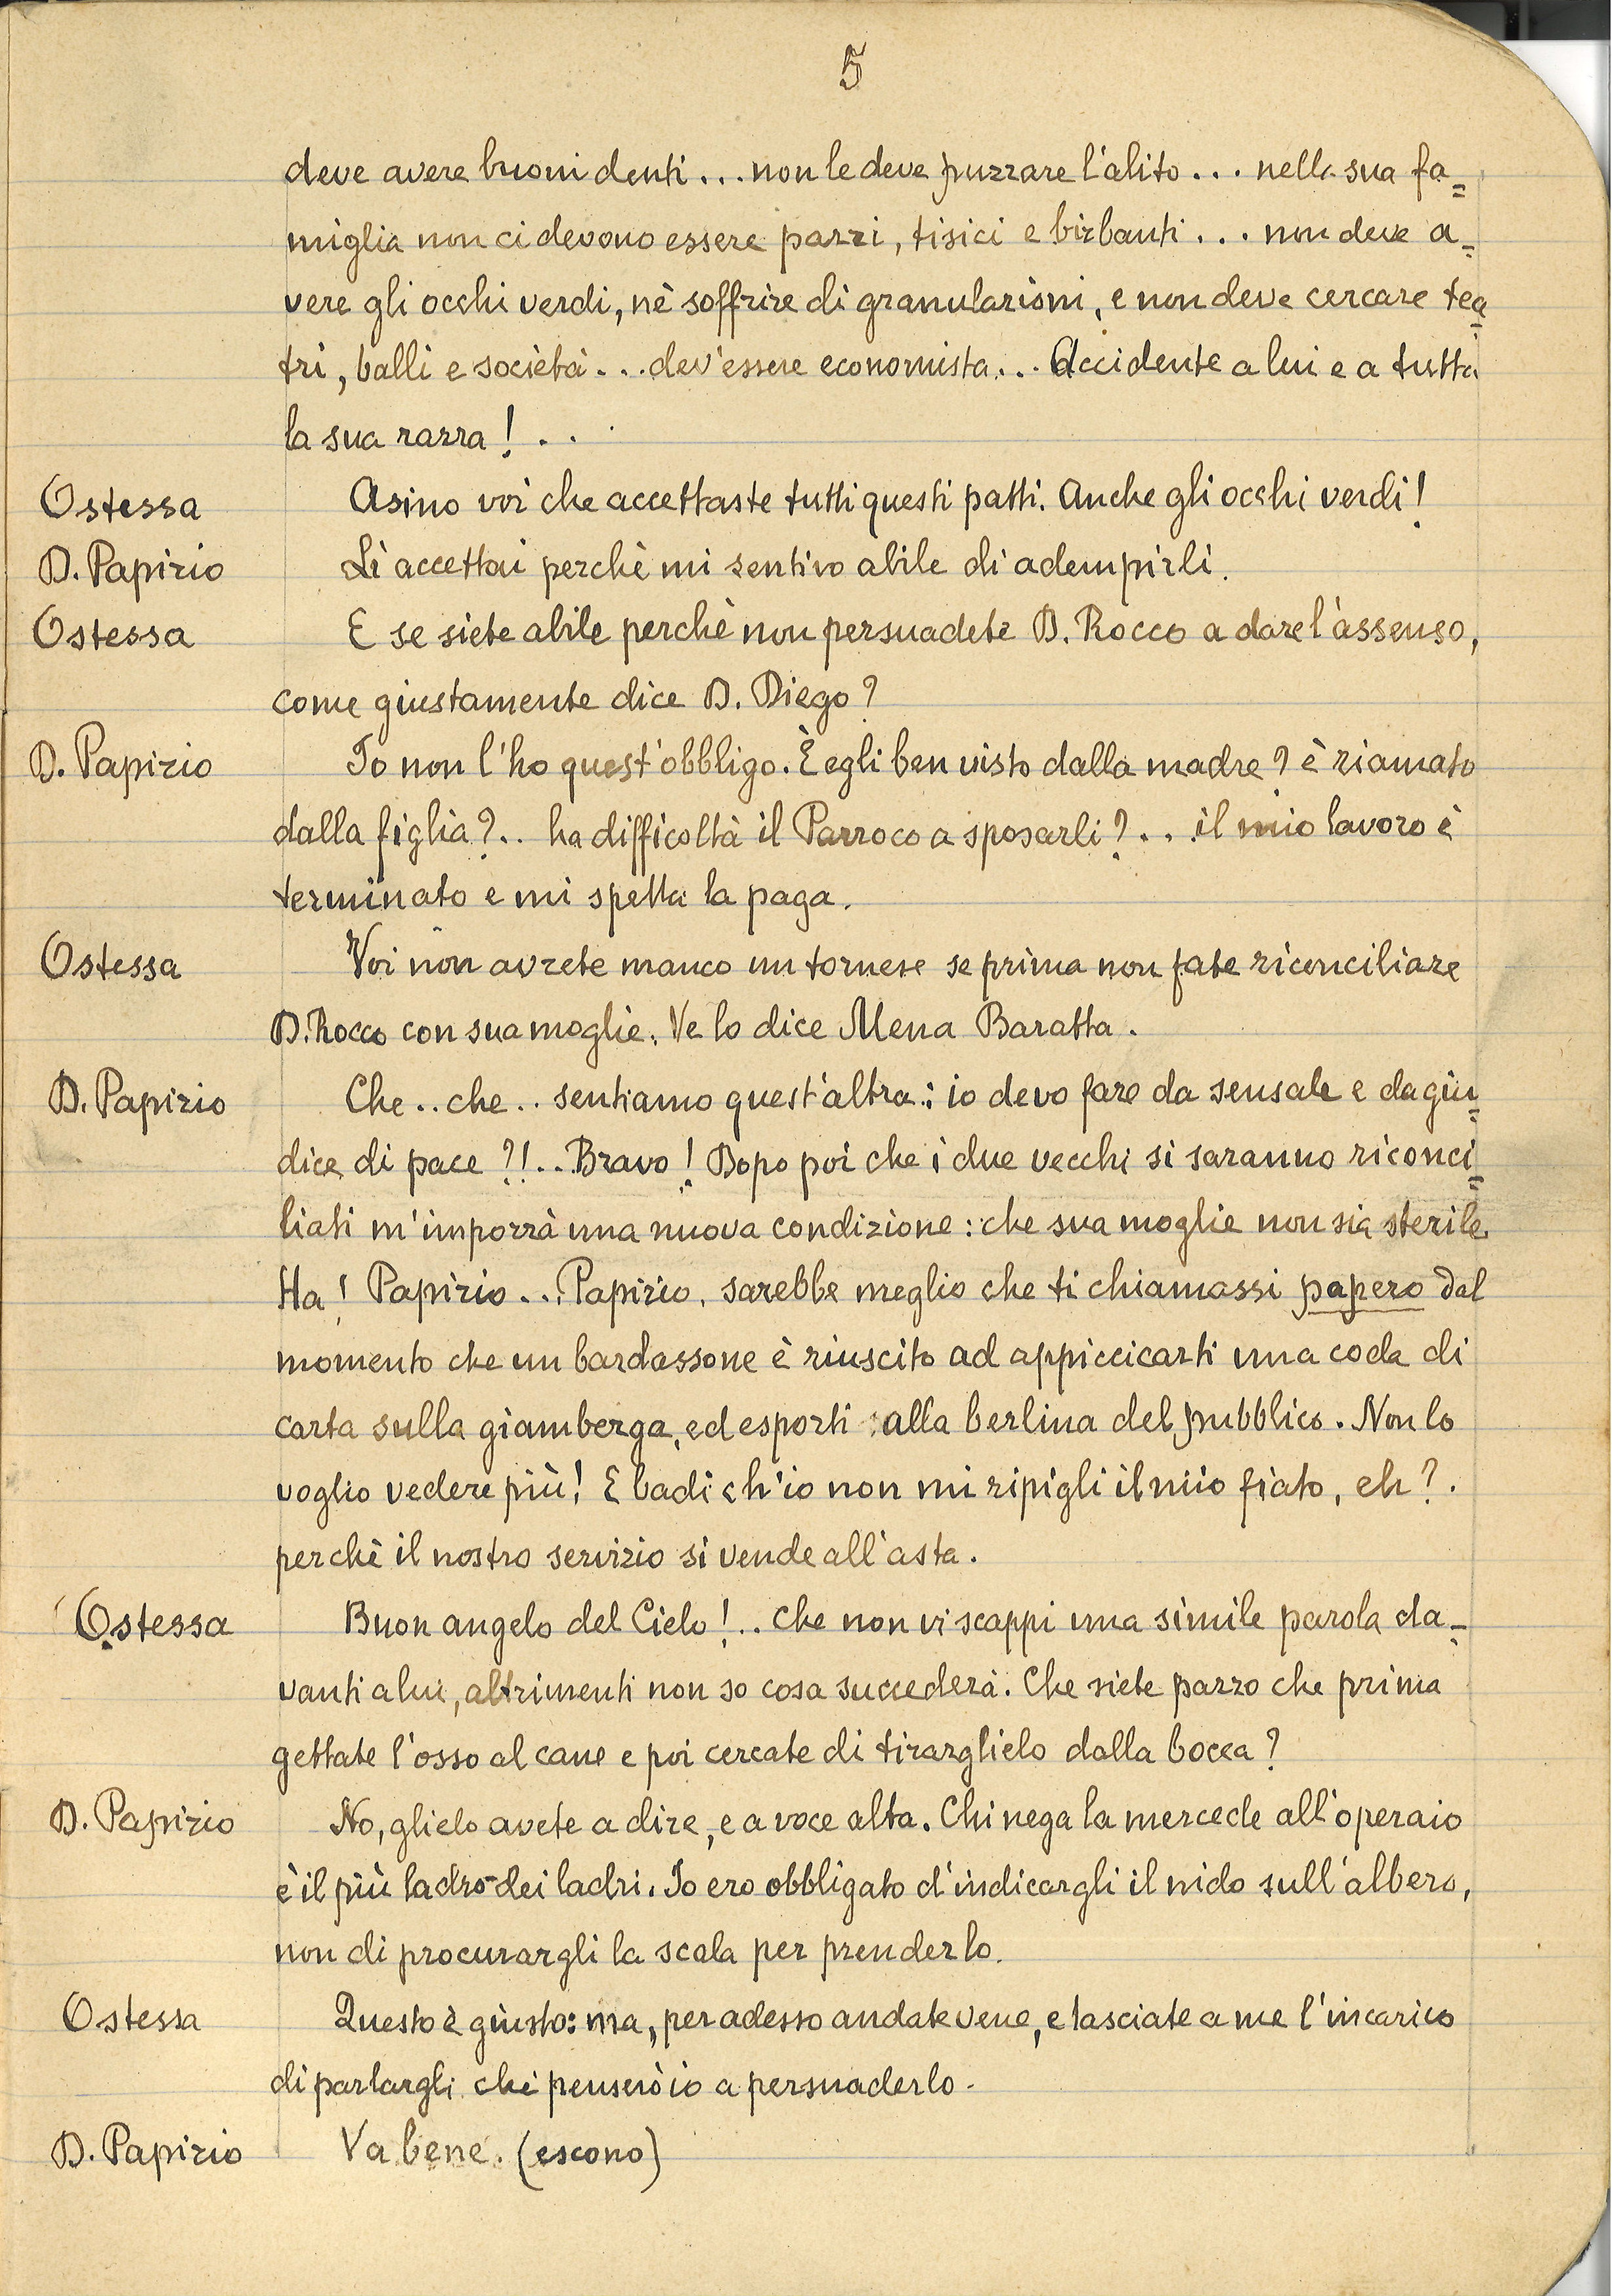 5
deve avere buoni denti... non le deve puzzare l'alito... nella sua fa=
miglia non ci devono essere pazzi, tisici e birbanti... non deve a=
vere gli occhi verdi, nè soffrire di granulazioni, e non deve cercare tea=
tri, balli e società... dev'essere economista... Accidente a lui e a tutta
la sua razza!..
Ostessa Asino voi che accettaste tutti questi patti. Anche gli occhi verdi!
D. Papirio Li accettai perchè mi sentivo abile di adempirli.
Ostessa E se siete abile perchè non persuadete D. Rocco a dare l'assenso,
come giustamente dice D. Diego?
D. Papirio Io non l'ho quest'obbligo. È egli ben visto dalla madre? è riamato
dalla figlia?.. ha difficoltà il Parroco a sposarli?... il mio lavoro è
terminato e mi spetta la paga.
Ostessa Voi non avrete manco un tornese se prima non fate riconciliare
D. Rocco con sua moglie. Ve lo dice Mena Baratta.
D. Papirio Che.. che.. sentiamo quest'altra: io devo fare da sensale e da giu=
dice di pace?!.. Bravo! Dopo poi che i due vecchi si saranno riconci=
liati m'imporrà una nuova condizione: che sua moglie non sia sterile.
Ha! Papirio... Papirio, sarebbe meglio che ti chiamassi papero dal
momento che un bardassone è riuscito ad appiccicarti una coda di
carta sulla giamberga, ed esporti alla berlina del pubblico. Non lo
voglio vedere più! E badi ch'io non mi ripigli il mio fiato, eh?.
perchè il nostro servizio si vende all'asta.
Ostessa Buon angelo del Cielo!.. Che non vi scappi una simile parola da=
vanti a lui, altrimenti non so cosa succederà. Che siete pazzo che prima
gettate l'osso al cane e poi cercate di tirarglielo dalla bocca?
D. Papirio No, glielo avete a dire, e a voce alta. Chi nega la mercede all'operaio
è il più ladro dei ladri. Io ero obbligato d'indicargli il nido sull'albero,
non di procurargli la scala per prenderlo.
Ostessa Questo è giusto: ma, per adesso andatevene, e lasciate a me l'incarico
di parlargli chè penserò io a persuaderlo.
D. Papirio Va bene. (escono)